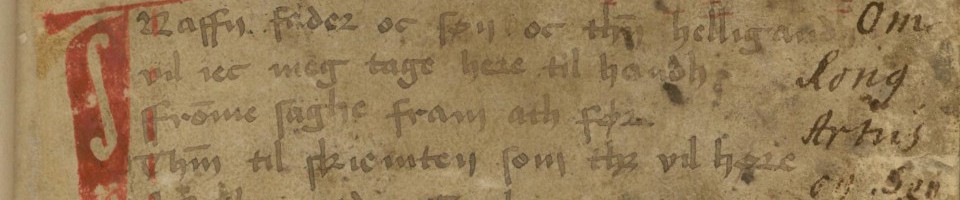 I Naffn fader oc søn oc thn̄ helligand
vil iec meg tage here til handh
ffrōme saghe fram ath før
Thm̄ til skiemten som thz vil høre
Om
Kong
Artus
og